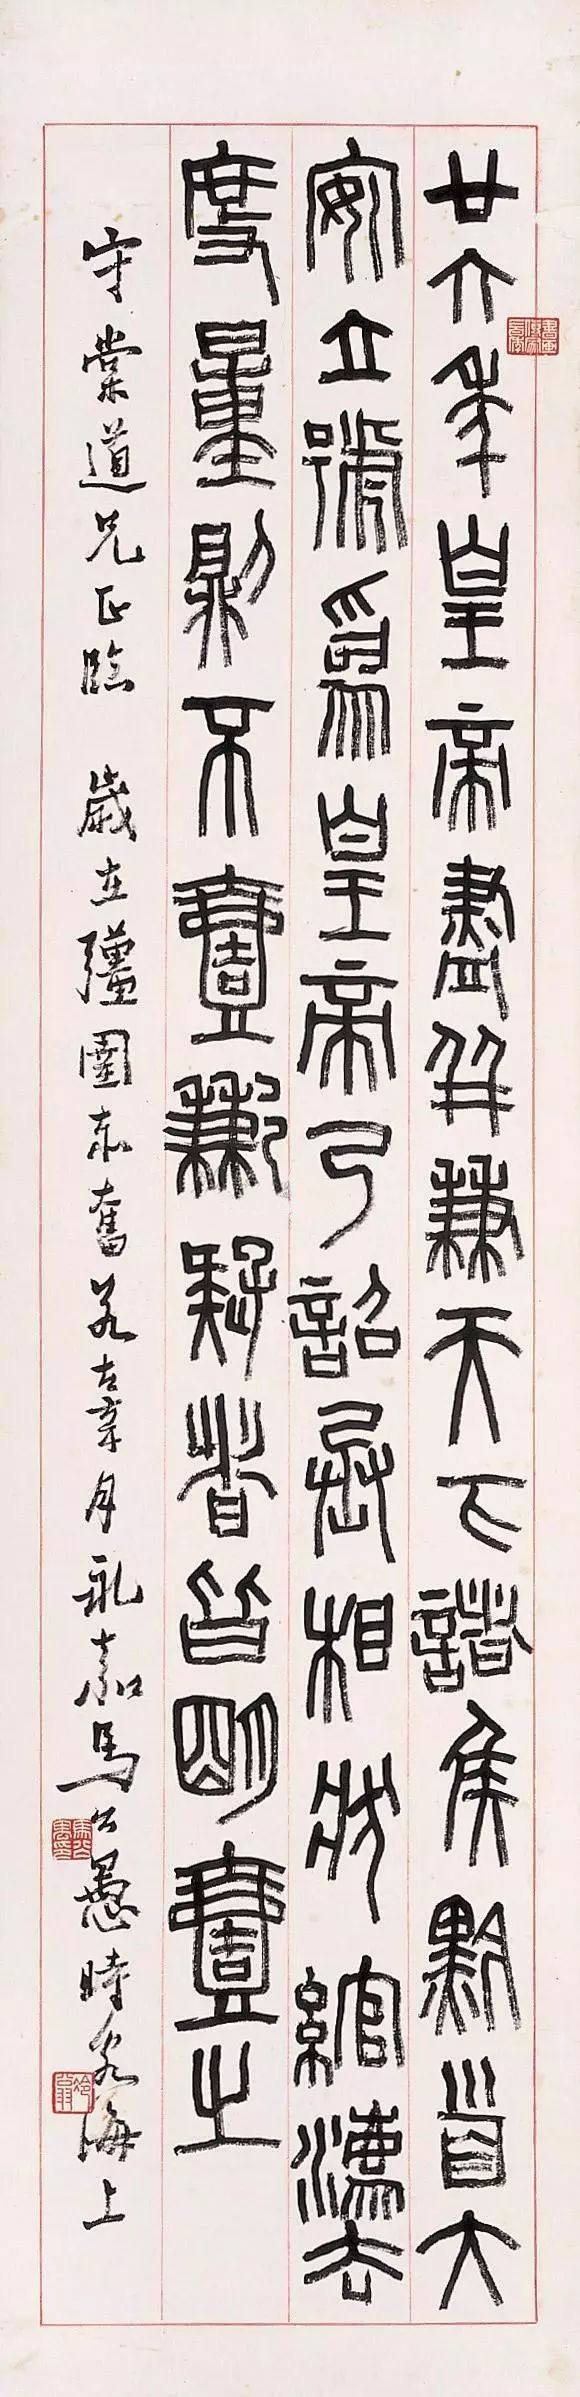 廿六年皇帝盡并兼天下諸侯黔首大
安立號爲皇帝乃詔丞相狀綰灋
度量則不壹歉疑者皆明壹之
守棠道兄正臨 歲在彊圉赤奮若古辜月永嘉馬公愚時客海上